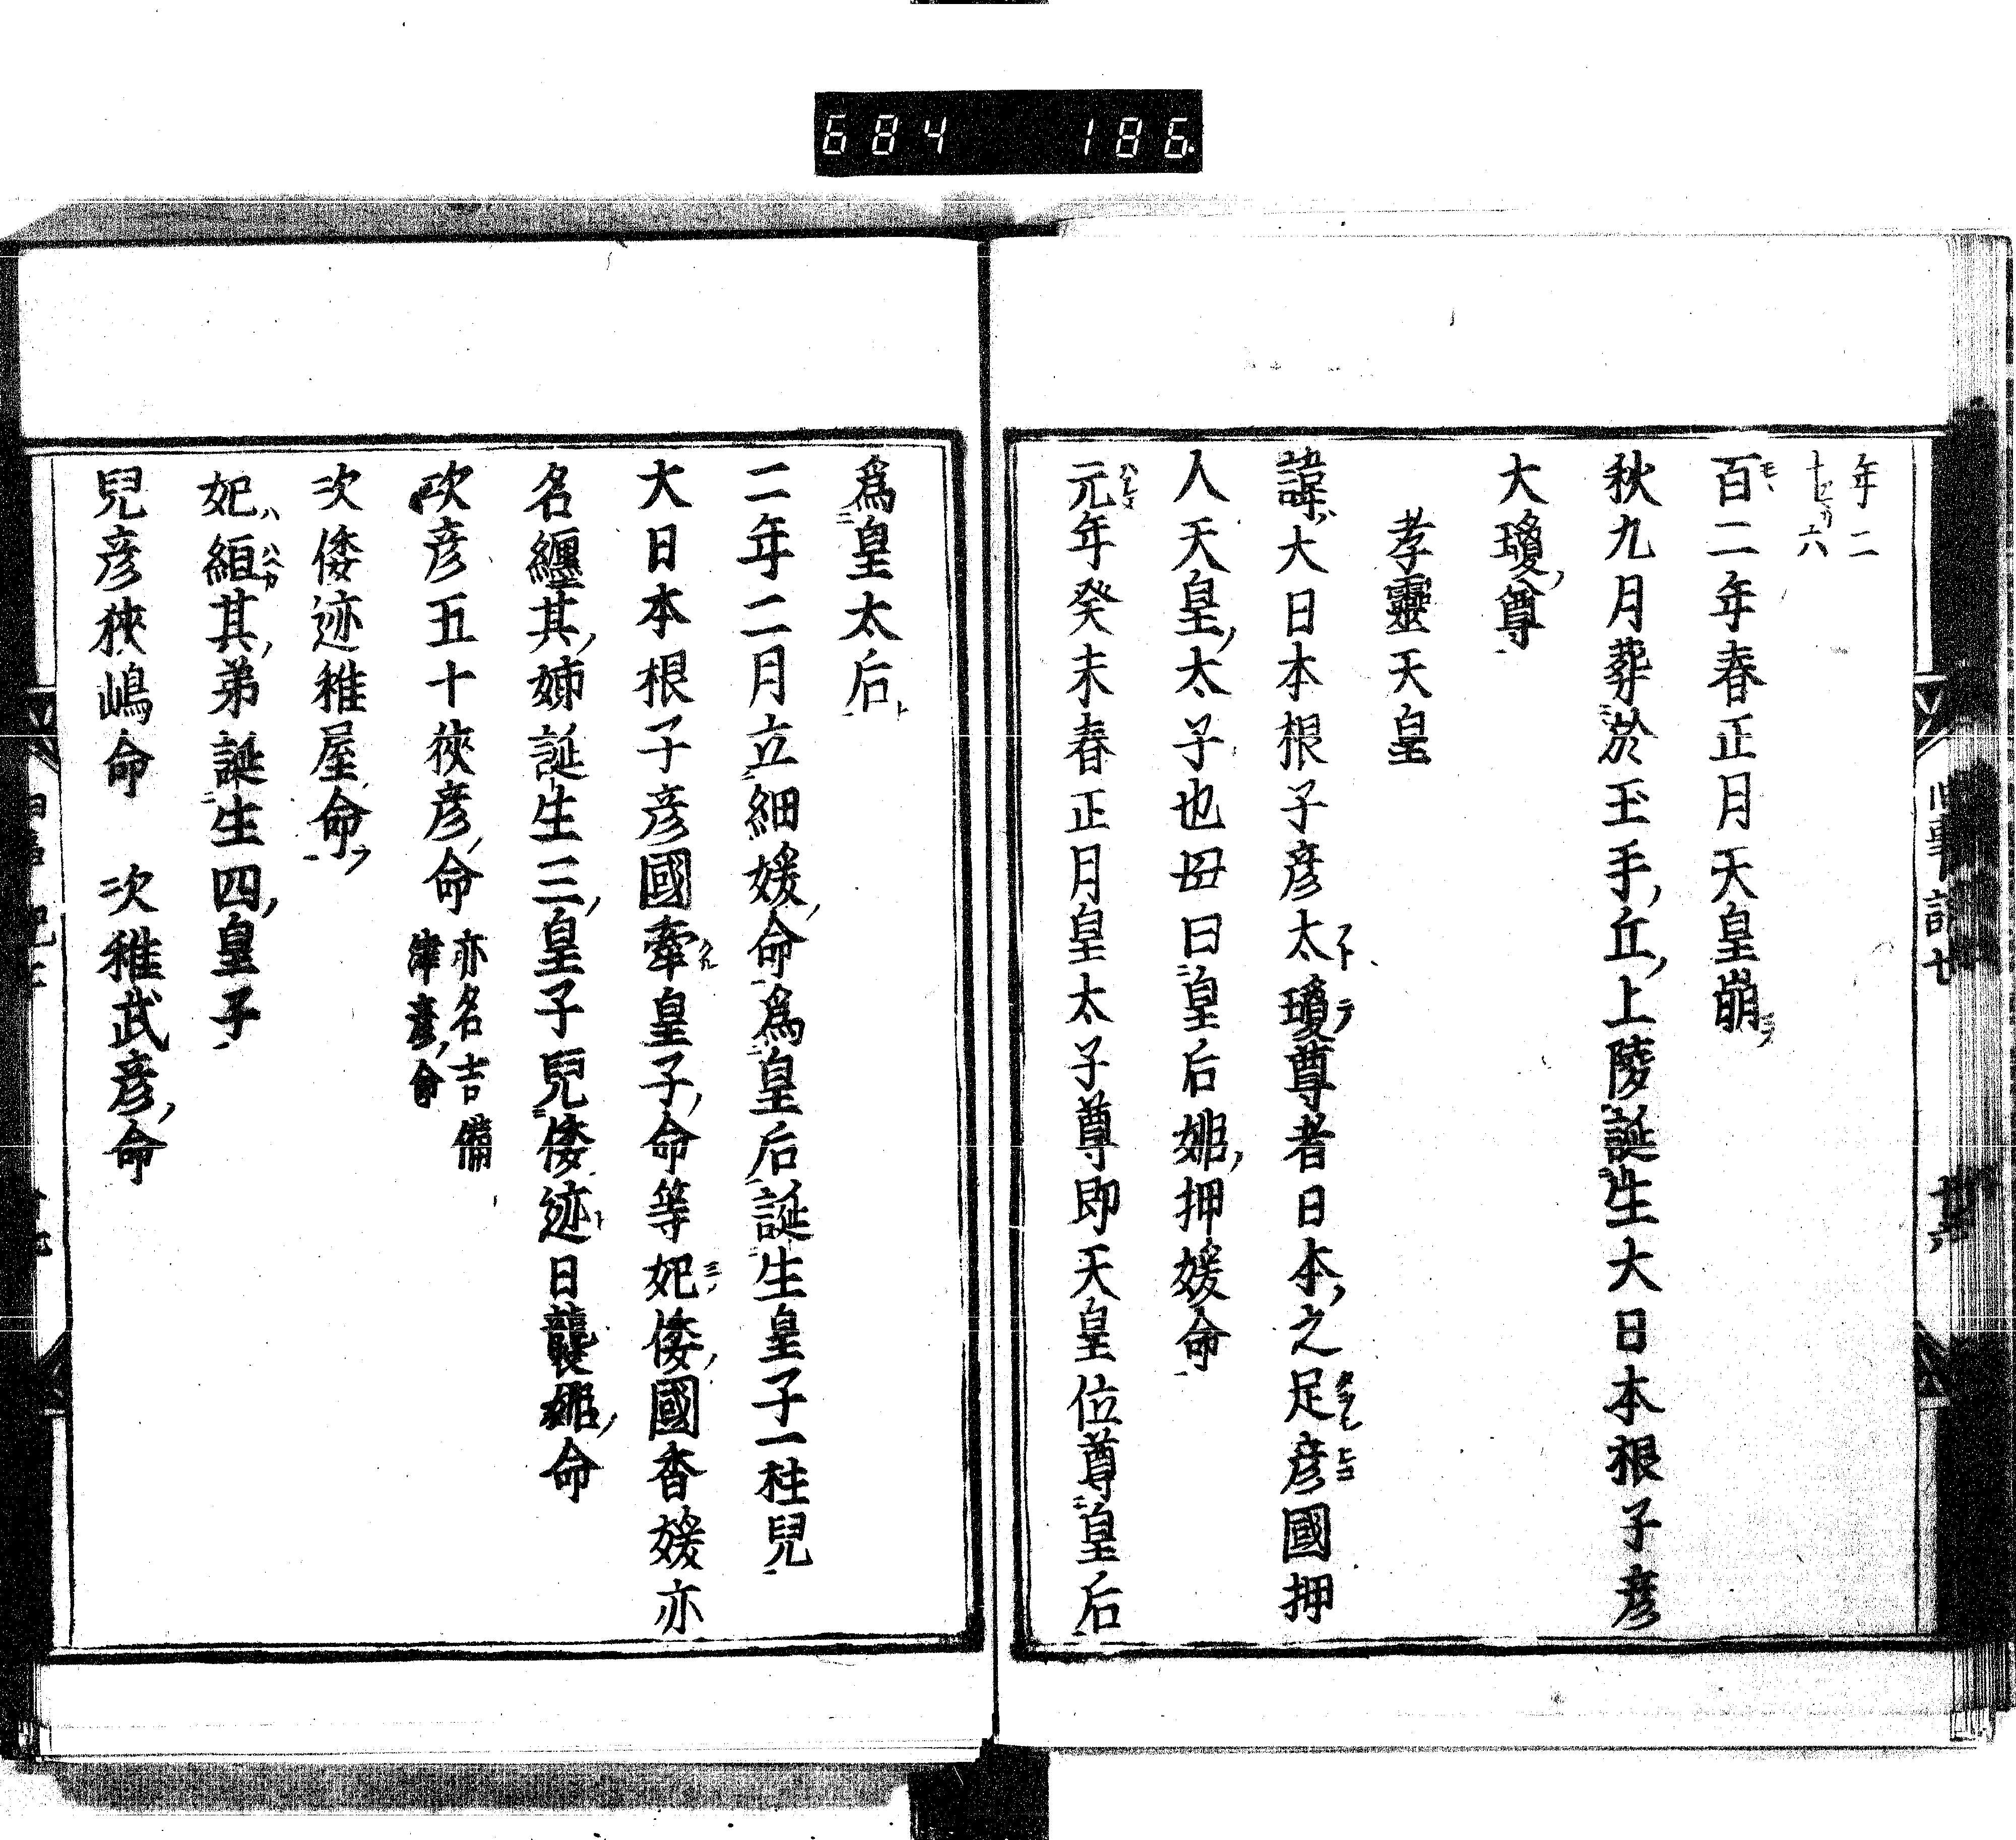 684 186
年二
十六
百二年春正月天皇崩
秋九月葬於玉手丘上陵誕生大日本根子彦
大瓊尊
孝靈天皇
諱大日本根子彦太瓊尊者日本之足彦國押
人天皇太子也母曰皇后姫押媛命
元年癸未春正月皇太子尊即天皇位尊皇后
爲皇太后
二年二月立細媛命爲皇后誕生皇子一柱兒
大日本根子彦國牽皇子命等妃倭國香媛亦
名絙其姉誕生三皇子兒倭迹日襲姫命
次彦五十狹彦命 亦名吉備
津彦命
次倭迹稚屋命
妃絙其弟誕生四皇子
兒彦狹嶋命 次稚武彦命